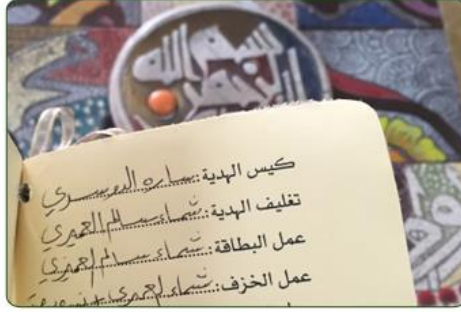 بسم الله
الرحمن
كيس الهدية: ساره الدوسري
تغليف الهدية: شماء سالم العميري
عمل البطاقة: شماء سالم العميري
عمل الخزف: شماء العميري +